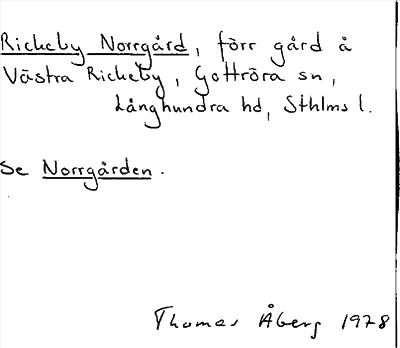 Rickeby Norrgård, förr gård å
Västra Rickeby, Gottröra sn,
Långhundra hd, Sthlms l.
Se Norrgården.
Thomas Åberg 1978